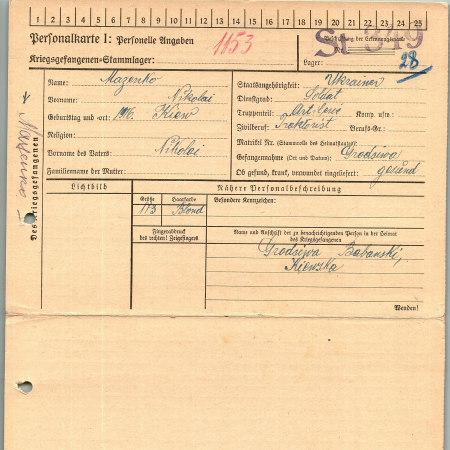 1 2 3 4 5 6 7 8 9 10 11 12 13 14 15 16 17 18 19 20 21 22 23 24 25
Personalkarte I: Personelle Angaben
1153
Beschriftung der Erkennungsmarke
Nr.
St 349
Kriegsgefangenen-Stammlager:
Lager:
28
Des Kriegsgefangenen
Name: Mazenko
Vorname: Nikolai
Geburtstag und -ort: 1916. Kiew
Religion:
Vorname des Vaters: Nikolai
Familienname der Mutter:
Staatsangehörigkeit: Ukrainer
Dienstgrad: Soldat
Truppenteil: Komp. usw.:
Zivilberuf: Traktorist Berufs-Gr.:
Matrikel Nr. (Stammrolle des Heimatstaates):
Gefangennahme (Ort und Datum): Grodsiwa
Ob gesund, krank, verwundet eingeliefert: gesund
Lichtbild
Nähere Personalbeschreibung
Größe Haarfarbe Besondere Kennzeichen:
173 Blond
Fingerabdruck
des rechten! Zeigefingers
Name und Anschrift der zu benachrichtigenden Person in der Heimat
des Kriegsgefangenen
Grodsiwa Babanski,
Kiewska
Wenden!